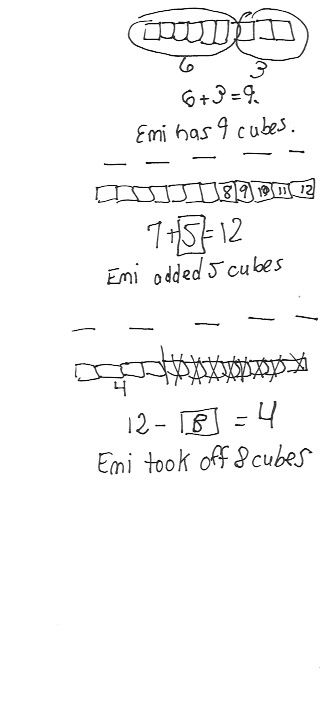 6 3
6+3=9.
Emi has 9 cubes.
8 9 10 11 12
7+5=12
Emi added 5 cubes
4
12-8=4
Emi took off 8 cubes